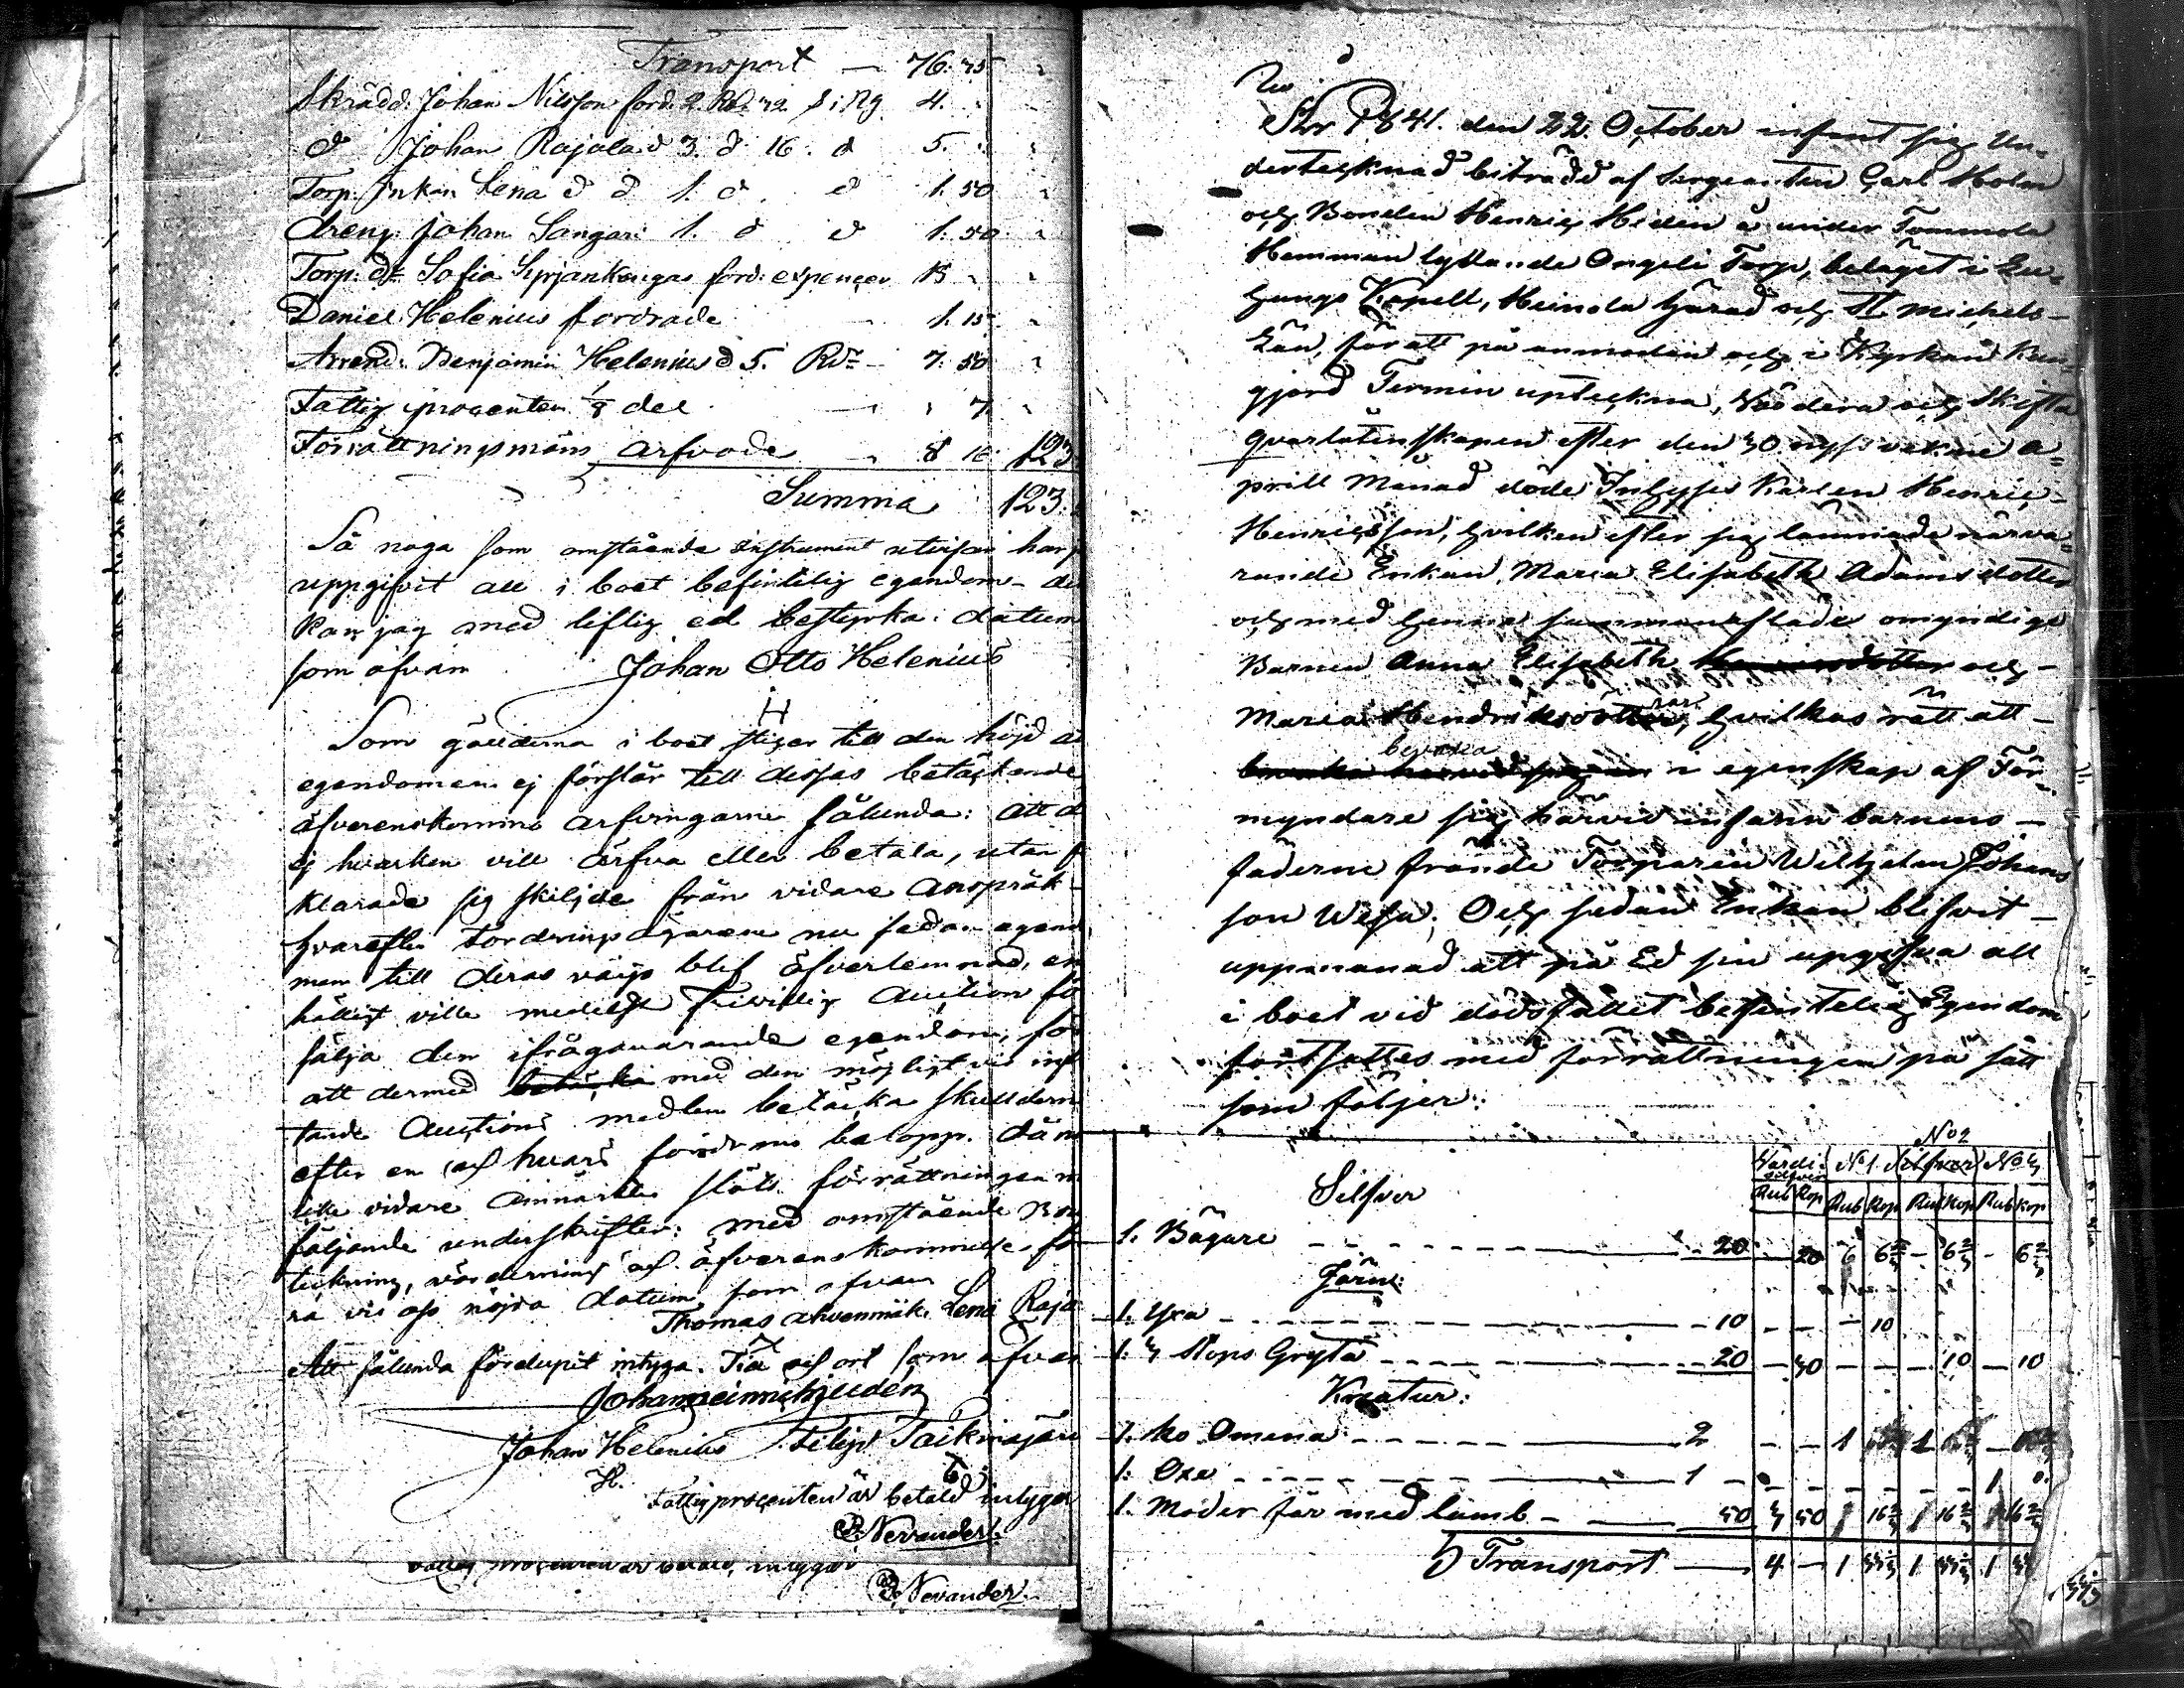 Transport — 76. 75
Skrädd. Johan Nilsson ford. 2. Rd. 72. S i Rg 4.
d Johan Rajala d 3. d 16. d 5.
Torp. Enkan Lena d d 1. d. d 1. 50
dreng. Johan Sangari 1. d d 1. 50
Torp. dr Sofia Syrjänkangas ford. expenser 13
Daniel Helenius fordrade — 1. 15
Arrend. Benjamin Helenius d 5. Rd — 7. 50
Fattig procenten 1/8 del — 7.
Förrättningsmäns arfvode — 8 10 123
Summa 123.
Så noga som omstående instrument utvisar har j
uppgifvit all i boet befintlig egendom – de
kan jag med liflig ed bestyrka: datum
som ofvan Johan Otto Helenius
H
Som gälderna i boet stiger till den höjd a
egendomen ej förslår till dessas betäckande
öfverenskommo arfvingarne sålunda: att d
ej hvarken vill ärfva eller betala, utan f
klarade sig skiljde från vidare anspråk
hvarefter fordringsägarene nu sedan egend
men till deras väijo blef öfverlemnad, en
hälligt ville medelst frivillig auction för
sälja den ifrågavarande egendom, för
att dermed betäcka med den möjligt vis infl
tande Auctions medlen betäcka skulderna
efter en och hvars fordrans belopp. Då n
icke vidare anmärktes slöts förrättningen m
följande underskrifter: med omstående Bou
teckning, värdering och öfverenskommelse för
ra vi oss nöjda datum som ofvan
Thomas Ahvenmäki Lena Raja
Att sålunda förelupit intyga. Tid och ort som ofvan
Johan
Johan Helenius Filip Taickinajärv
H.
Fattigprocenten är betald intygar
Nervander.
Fattig procenten är betald, intygar
Nervander.
År 1841. den 22. October infant sig Un-
dertecknad biträdd af Sergeanten Carl Holm
och Bonden Henric Heden å under Tommola
Hemman lydande Ongeli Torp, beläget i
Kapell, Heinola härad och St. Michels
Län, för att på anmodan och i Kyrkan kun-
gjord Termin upteckna, värdera och Skifta
qvarlåtenskapen efter den 30. nyss vekne A-
prill Månad döde Inhyses Karlen Henric
Henricsson, hvilken efter sig lämnade närva-
rande Enkan Maria Elisabeth Adamsdotter
och med henne sammanaflade omyndige
Barnen Anna Elisabeth Henricsdotter och
Maria Hendriksdöttrar, hvilkas rätt att
bevaka
i egenskap af För-
myndare sig härvid infann barnens
fäderne frände Torparen Wilhelm Johans
son Wesa; Och sedan Enkan blifvit
uppmanad att på Ed sin uppgifva all
i boet vid dödsfallet befintelig Egendom
fortsattes med förrättningen på sätt
som följer:
No 2
Silfver Värdi: silfver No 1. Silfver No 3
Rub Kop Rub Kop Rub Kop Rub Kop
1. Bägare 20 – 20 6 6 2/3 – 6 2/3 – 6 2/3
Järn:
1. Yxa 10 – – – 10
1. 3 Stops Gryta 20 – 30 – – – 10 – 10
Kreatur:
1. Ko Omena 2 – – 1 1
1. Oxe 1 – – – – – – 1
1. Moder får med lamb 50 3 50 16 2/3 16 2/3 16 2/3
Transport — 4 – 1 33 1/3 1 33 1/3 1 33